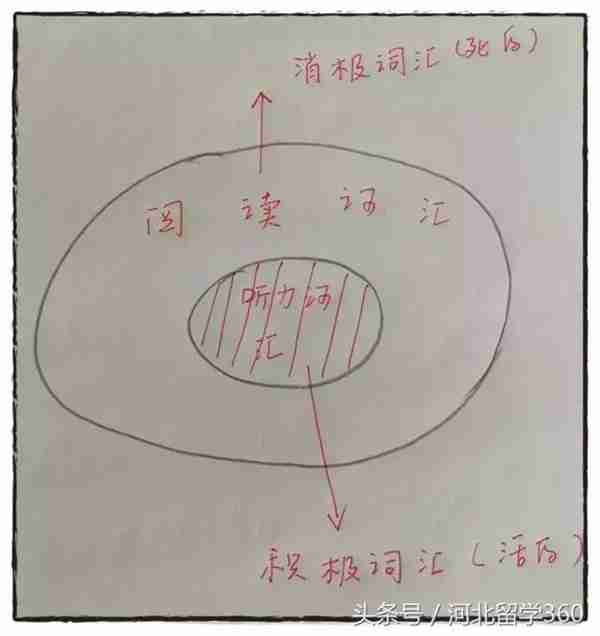 消极词汇(死的)
阅读词汇
听力词
汇
积极词汇(活的)
头条号 / 河北留学360